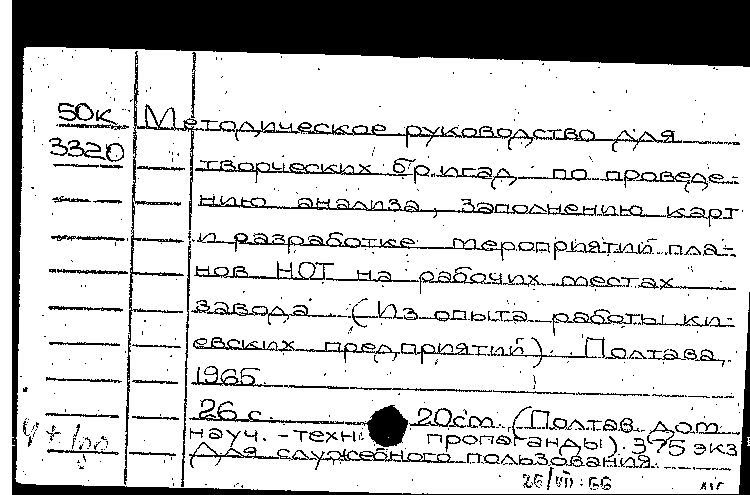 50К Методическое руководство для
3320 творческих бригад по проведе-
нию анализа, заполнению карт
и разработке мероприятий пла-
нов НОТ на рабочих местах
завода (Из опыта работы ки-
евских предприятий). Полтава,
1965.
26 с. 20см. (Полтав. дом
науч.-техн пропаганды). 375 экз
Для служебного пользования.
26/VII-66